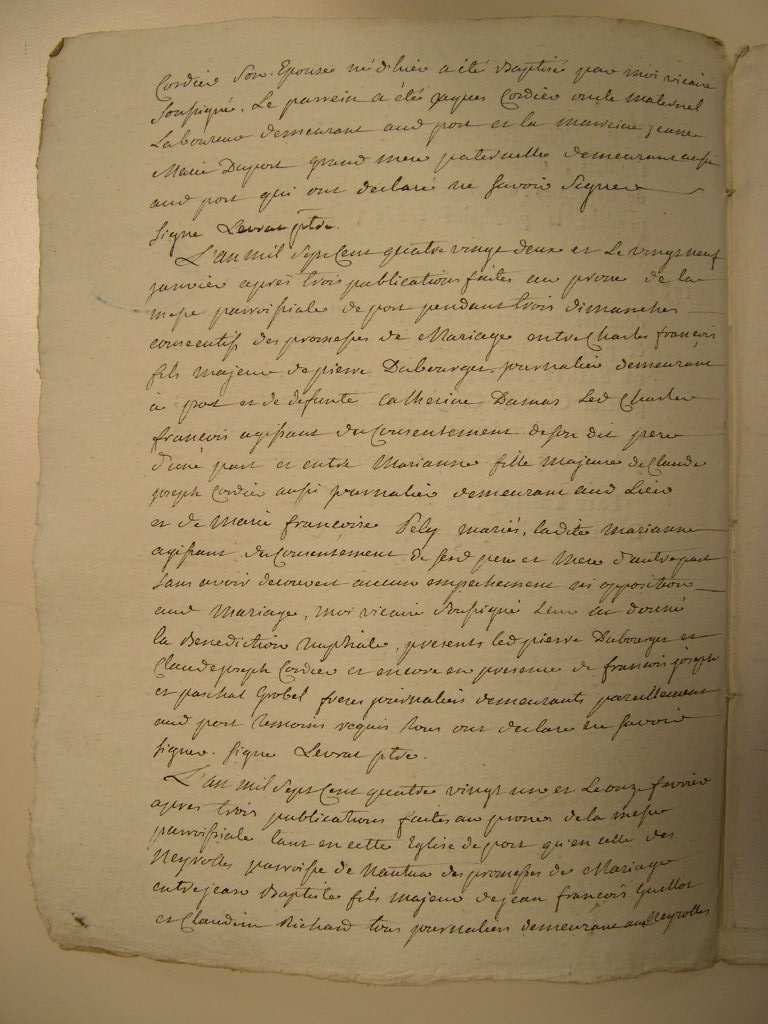 Cordier son Epouse né d'hier a été Baptisé par moi vicaire
soussigné. Le parrein a été jaques Cordier oncle maternel
Laboureur demeurant aud port et la marreine jeanne
Marie Duport grand mere paternelle demeurant aussi
aud port qui ont declaré ne savoir signer
signé Levrat ptre.
L'an mil sept Cent quatre vingt deux et Le vingt neuf
janvier après trois publications faites au prone de la
messe parroissiale de port pendant trois dimanches
consecutifs des promesses de Mariage entre Charles françois
fils majeur de pierre Dubourger journalier demeurant
a port et de defunte Catherine Damas Led Charles
francois agissant du Consentement de son dit pere
d'une part et entre Marianne fille majeure de Claude
joseph Cordier aussi journalier demeurant aud Lieu
et de Marie francoise Pely mariés, ladite Marianne
agissant du Consentement de sesd pere et Mere d'autre part
sans avoir decouvert aucun empechement ni opposition
aud Mariage, moi vicaire soussigné Leur ai donné
la Benediction Nuptiale, presents led pierre Dubourger et
Claude joseph Cordier et encore en presence de francois joseph
et paschal Grobel freres journaliers demeurants pareillement
aud port temoins requis tous ont declare ne savoir
signer. signé Levrat ptre.
L'an mil sept Cent quatre vingt un et Le onze fevrier
apres trois publications faites au prone de la messe
parroissiale tant en cette Eglise de port qu'en celle des
Neyrolles parroisse de Nantua des promesses de Mariage
entre jean Baptiste fils majeur de jean francois Guillot
et Claudine Richard tous journaliers demeurant aux Neyrolles